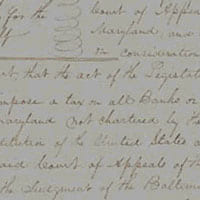 for the Court of Appea
Maryland, and
in consideration
that the act of the Legislat
impose a tax on all Banks or
Maryland not chartered by the
stitution of the United States a
said Court of Appeals of th
the Judgment of the Baltim